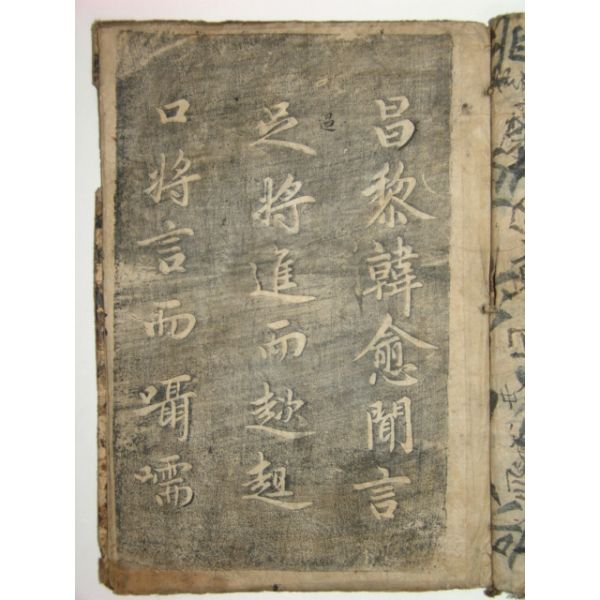 昌黎韓愈聞言
足將進而趑趄
口將言而囁嚅